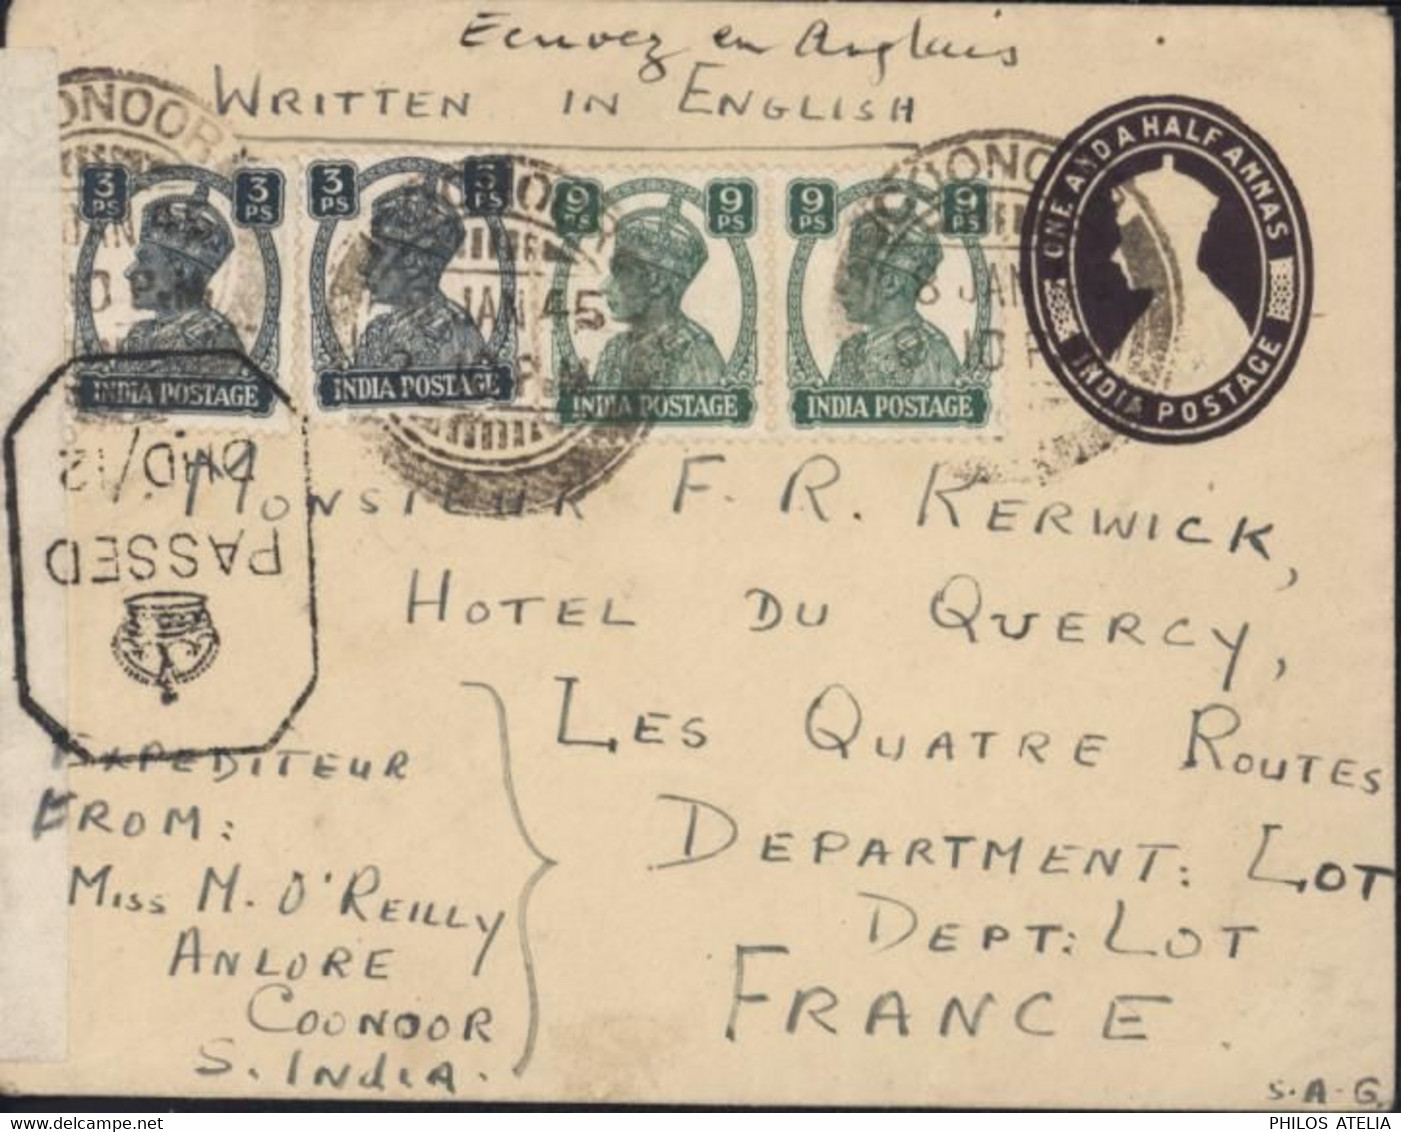 Ecrivez en Anglais
WRITTEN IN ENGLISH
ONE AND A HALF ANNAS
INDIA POSTAGE
COONOOR
COONOOR
JAN 45
10 P.M
8 JAN
3 PS 3 PS
INDIA POSTAGE
3 PS 3 PS
INDIA POSTAGE
9 PS 9 PS
INDIA POSTAGE
9 PS 9 PS
INDIA POSTAGE
PASSED
DHD/12
MONSIEUR F. R. KERWICK,
HOTEL DU QUERCY,
LES QUATRE ROUTES
DEPARTMENT: LOT
DEPT: LOT
FRANCE
EXPEDITEUR
FROM:
MISS M. O'REILLY
ANLORE
COONOOR
S. INDIA.
S.A.G.
PHILOS ATELIA